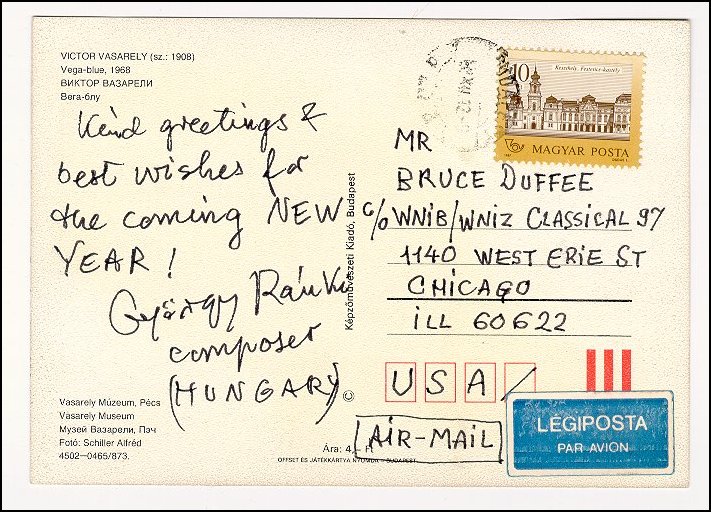 VICTOR VASARELY (sz.: 1908)
Vega-blue, 1968
ВИКТОР ВАЗАРЕЛИ
Вега-блу
Kind greetings &
best wishes for
the coming NEW
YEAR!
György Ránki
composer
(HUNGARY)
Vasarely Múzeum, Pécs
Vasarely Museum
Музей Вазарели, Пэч
Fotó: Schiller Alfréd
4502—0465/873.
Képzőművészeti Kiadó, Budapest
©
Ára: 4,— Ft
OFFSET ÉS JÁTÉKKÁRTYA NYOMDA — BUDAPEST
10
Keszthely, Festetics-kastély
MAGYAR POSTA
MR
BRUCE DUFFEE
c/o WNIB/WNIZ CLASSICAL 97
1140 WEST ERIE ST
CHICAGO
ILL 60622
USA/
AIR-MAIL
LÉGIPOSTA
PAR AVION